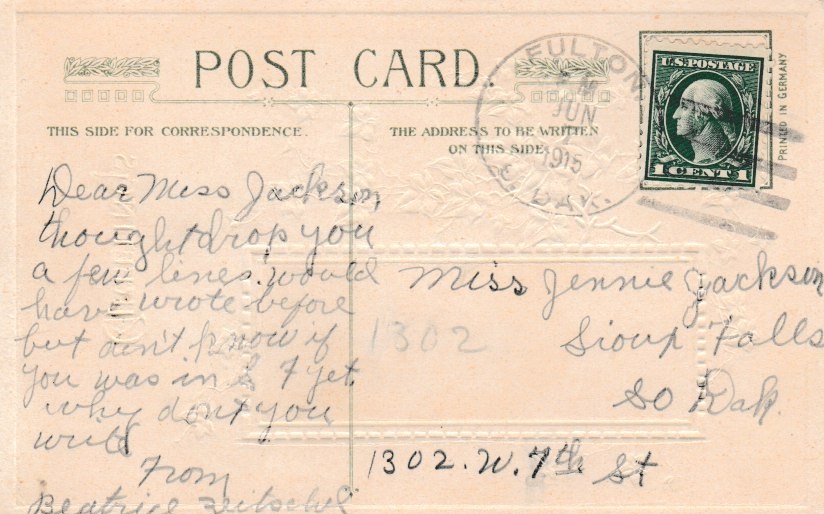 POST CARD.
THIS SIDE FOR CORRESPONDENCE.
THE ADDRESS TO BE WRITTEN
ON THIS SIDE
FULTON
M
JUN
1915
S. DAK.
U.S. POSTAGE
1 CENT 1
PRINTED IN GERMANY
Dear Miss Jackson,
thought drop you
a few lines. would
have wrote before
but didn't know if
you was in S F yet.
why dont you
write
From
Beatrice
Miss Jennie Jackson
1302
Sioux Falls
So Dak.
1302. W. 7th St